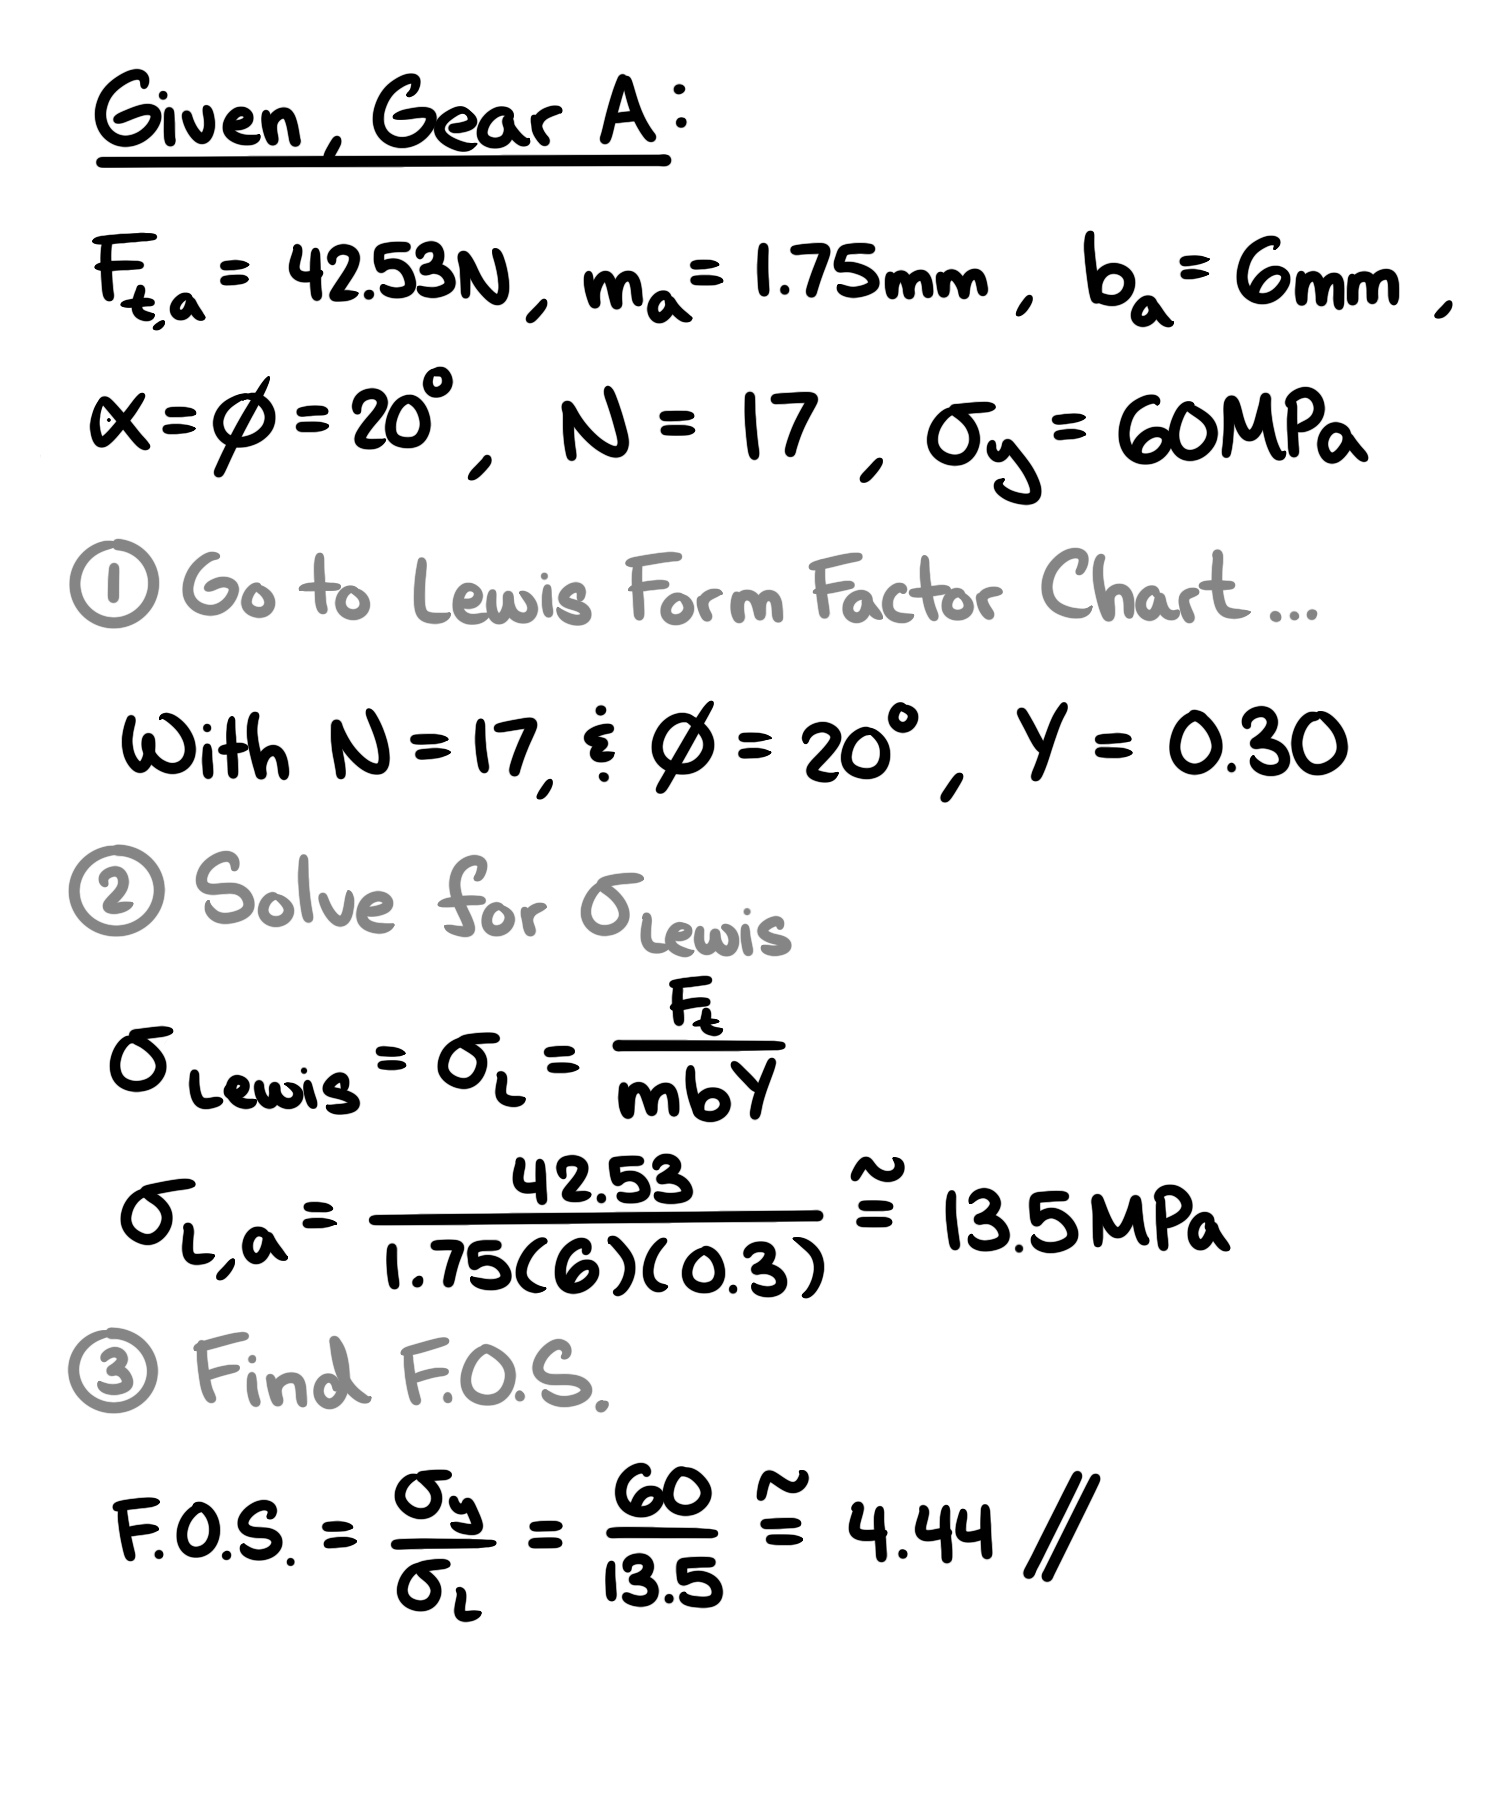 Given, Gear A:
F_t,a = 42.53N, m_a = 1.75mm, b_a = 6mm,
α = ø = 20°, N = 17, σ_y = 60MPa
① Go to Lewis Form Factor Chart...
With N = 17, & ø = 20°, Y = 0.30
② Solve for σ_Lewis
σ_Lewis = σ_L = F_t / mbY
σ_L,a = 42.53 / 1.75(6)(0.3) ≅ 13.5MPa
③ Find F.O.S.
F.O.S. = σ_y / σ_L = 60 / 13.5 ≅ 4.44 //